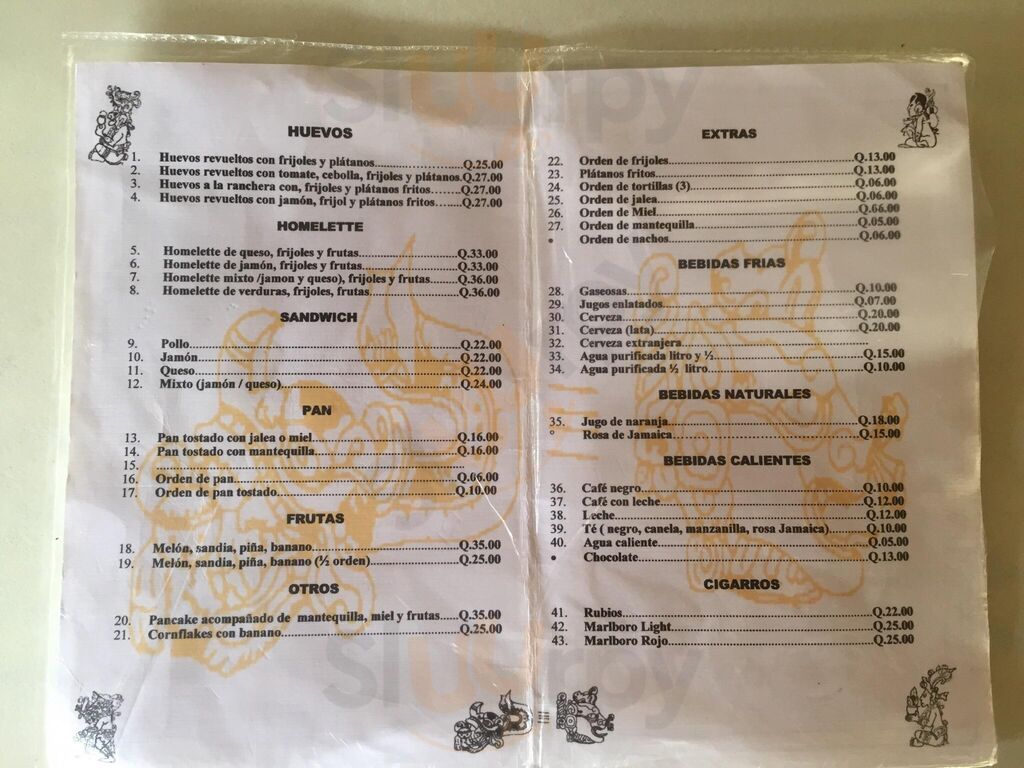 HUEVOS
1. Huevos revueltos con frijoles y plátanos..............................Q.25.00
2. Huevos revueltos con tomate, cebolla, frijoles y plátanos.Q.27.00
3. Huevos a la ranchera con, frijoles y plátanos fritos.........Q.27.00
4. Huevos revueltos con jamón, frijol y plátanos fritos........Q.27.00
HOMELETTE
5. Homelette de queso, frijoles y frutas..............................Q.33.00
6. Homelette de jamón, frijoles y frutas.............................Q.33.00
7. Homelette mixto /jamon y queso), frijoles y frutas.........Q.36.00
8. Homelette de verduras, frijoles, frutas...........................Q.36.00
SANDWICH
9. Pollo......................................................................Q.22.00
10. Jamón....................................................................Q.22.00
11. Queso.....................................................................Q.22.00
12. Mixto (jamón / queso)..............................................Q.24.00
PAN
13. Pan tostado con jalea o miel.......................................Q.16.00
14. Pan tostado con mantequilla.......................................Q.16.00
15. ..............................................................................
16. Orden de pan..........................................................Q.06.00
17. Orden de pan tostado...............................................Q.10.00
FRUTAS
18. Melón, sandia, piña, banano.......................................Q.35.00
19. Melón, sandia, piña, banano (½ orden).........................Q.25.00
OTROS
20. Pancake acompañado de mantequilla, miel y frutas.....Q.35.00
21. Cornflakes con banano.............................................Q.25.00
EXTRAS
22. Orden de frijoles...................................................Q.13.00
23. Plátanos fritos......................................................Q.13.00
24. Orden de tortillas (3)..............................................Q.06.00
25. Orden de jalea......................................................Q.06.00
26. Orden de Miel......................................................Q.66.00
27. Orden de mantequilla.............................................Q.05.00
• Orden de nachos....................................................Q.06.00
BEBIDAS FRIAS
28. Gaseosas..............................................................Q.10.00
29. Jugos enlatados.....................................................Q.07.00
30. Cerveza................................................................Q.20.00
31. Cerveza (lata).......................................................Q.20.00
32. Cerveza extranjera..................................................
33. Agua purificada litro y ½........................................Q.15.00
34. Agua purificada ½ litro..........................................Q.10.00
BEBIDAS NATURALES
35. Jugo de naranja.....................................................Q.18.00
° Rosa de Jamaica.....................................................Q.15.00
BEBIDAS CALIENTES
36. Café negro............................................................Q.10.00
37. Café con leche.......................................................Q.12.00
38. Leche...................................................................Q.12.00
39. Té ( negro, canela, manzanilla, rosa Jamaica).........Q.10.00
40. Agua caliente........................................................Q.05.00
• Chocolate..............................................................Q.13.00
CIGARROS
41. Rubios..................................................................Q.22.00
42. Marlboro Light......................................................Q.25.00
43. Marlboro Rojo.......................................................Q.25.00
Sluurpy
Sluurpy